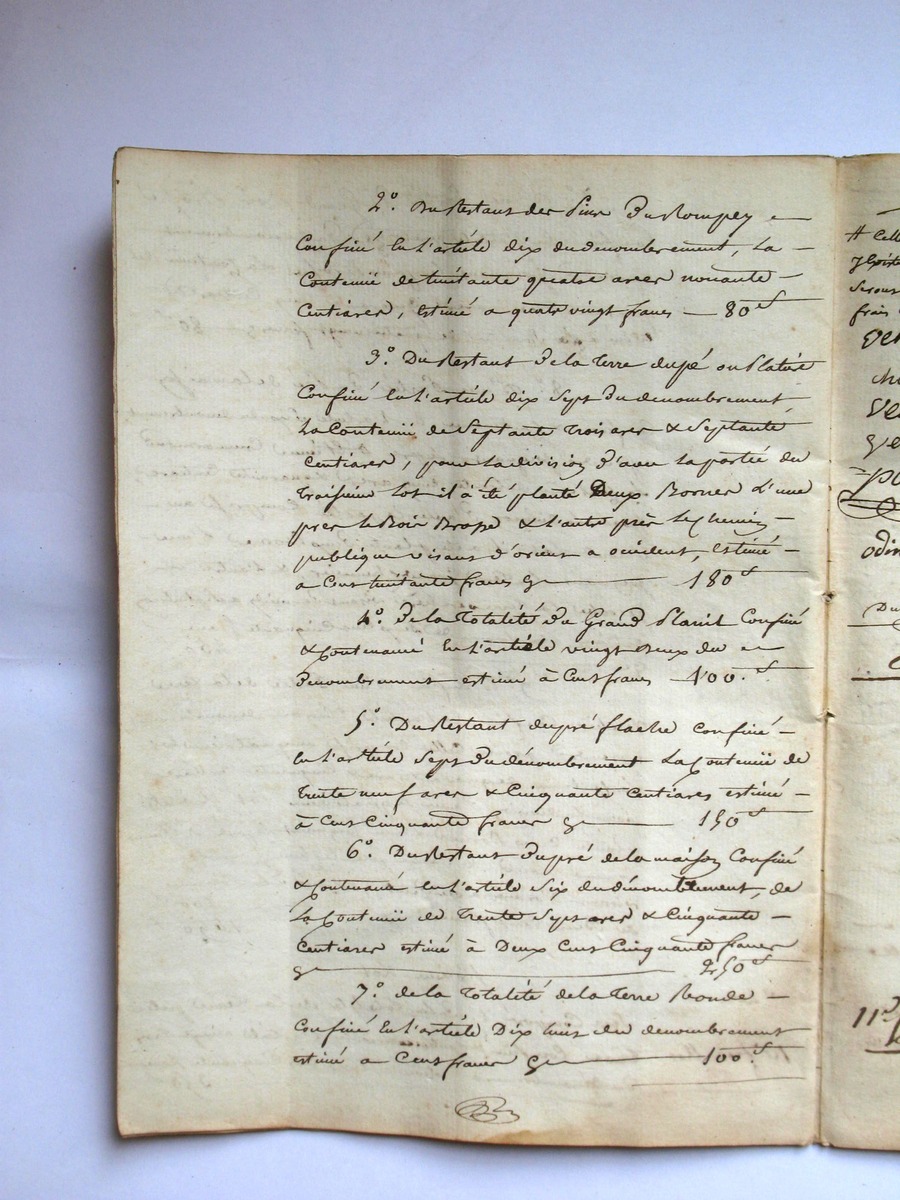 2º. Du Restant des Pins Du Rompey
Confiné En l'article dix du denombrement, La
Contenüe de huitante quatre ares nonante
Centiares, estimé a quatre vingt francs 80 f
3º. Du Restant De la Terre du pé ou Platiere
Confiné En l'article dix Sept Du denombrement
La Contenüe de Septante Trois ares & Septante
Centiares, pour la division D'avec la partie du
Troisieme lot il à été planté Deux Bornes L'une
près le Bois Brossé & L'autre près Le Chemin
publique visant d'orient a occident, Estimé
a Cent huitante francs 180 f
4º. De la Totalité Du Grand Confiné
& Contenancé En l'article vingt Deux du
Denombrement estimé à Cent francs 100. f
5º. Du Restant du pré flache confiné
En l'article Sept Du dénombrement La Contenüe de
Trente neuf ares & Cinquante Centiares estimé
à Cent Cinquante francs 150 f
6º. Du Restant Du pré de la maison Confiné
& Contenancé En l'article Six du dénombrement, de
La Contenüe de Trente Sept ares & Cinquante
Centiares estimé à Deux Cent Cinquante francs
250 f
7º. de la Totalité de la Terre Ronde
Confiné En l'article Dix huit du denombrement
estimé a Cent francs 100. f
# Cell
frais
11º